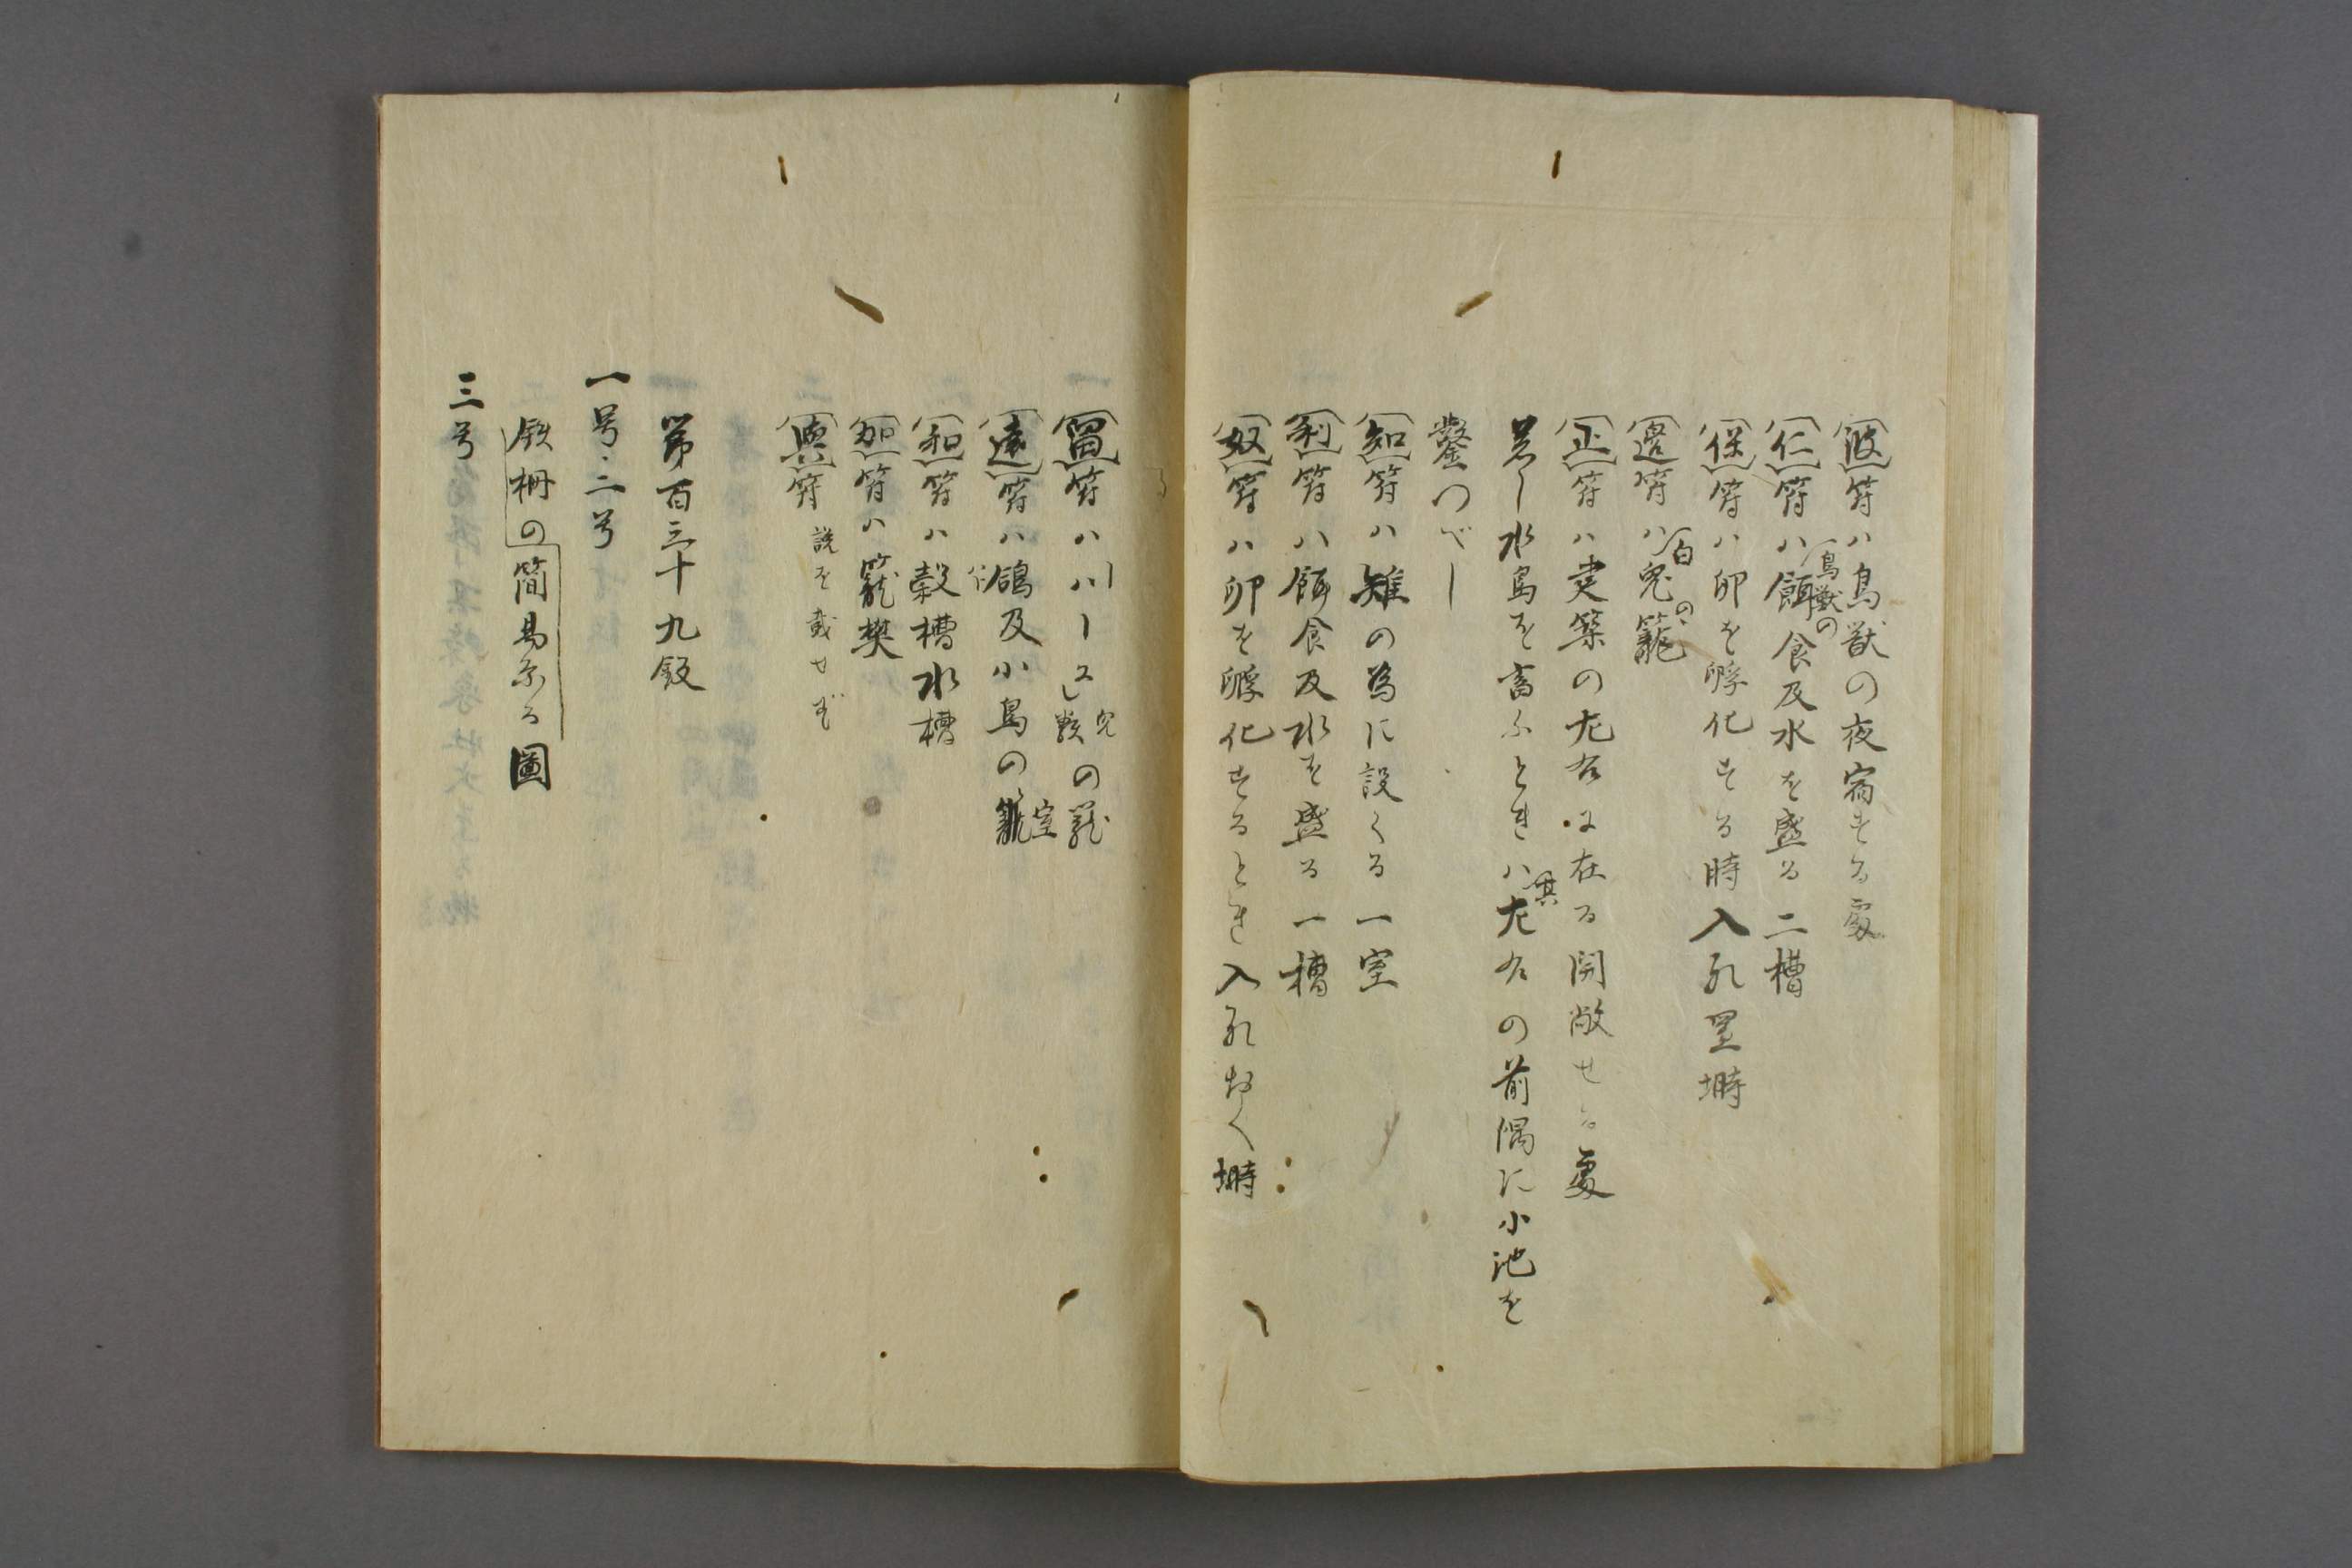 波符ハ鳥獣の夜宿する處
仁符ハ鳥獣の餌食及水を盛る二槽
保符ハ卵を孵化する時入れ置塒
邊符ハ白兎の籠
正符ハ建築の尢右に在る開敞せる處
若し水鳥を畜ふときハ其尢右の前隅に小池を
鑿つべし
知符ハ雉の為に設くる一室
利符ハ餌食及水を盛る一槽
奴符ハ卵を孵化するとき入れおく塒
留符ハ
遠符ハ鴿及小鳥の室
和符ハ穀槽水槽
加符ハ籠樊
與符 説を載せず
第百三十九版
一号・二号
鉄柵の簡易なる圖
三号